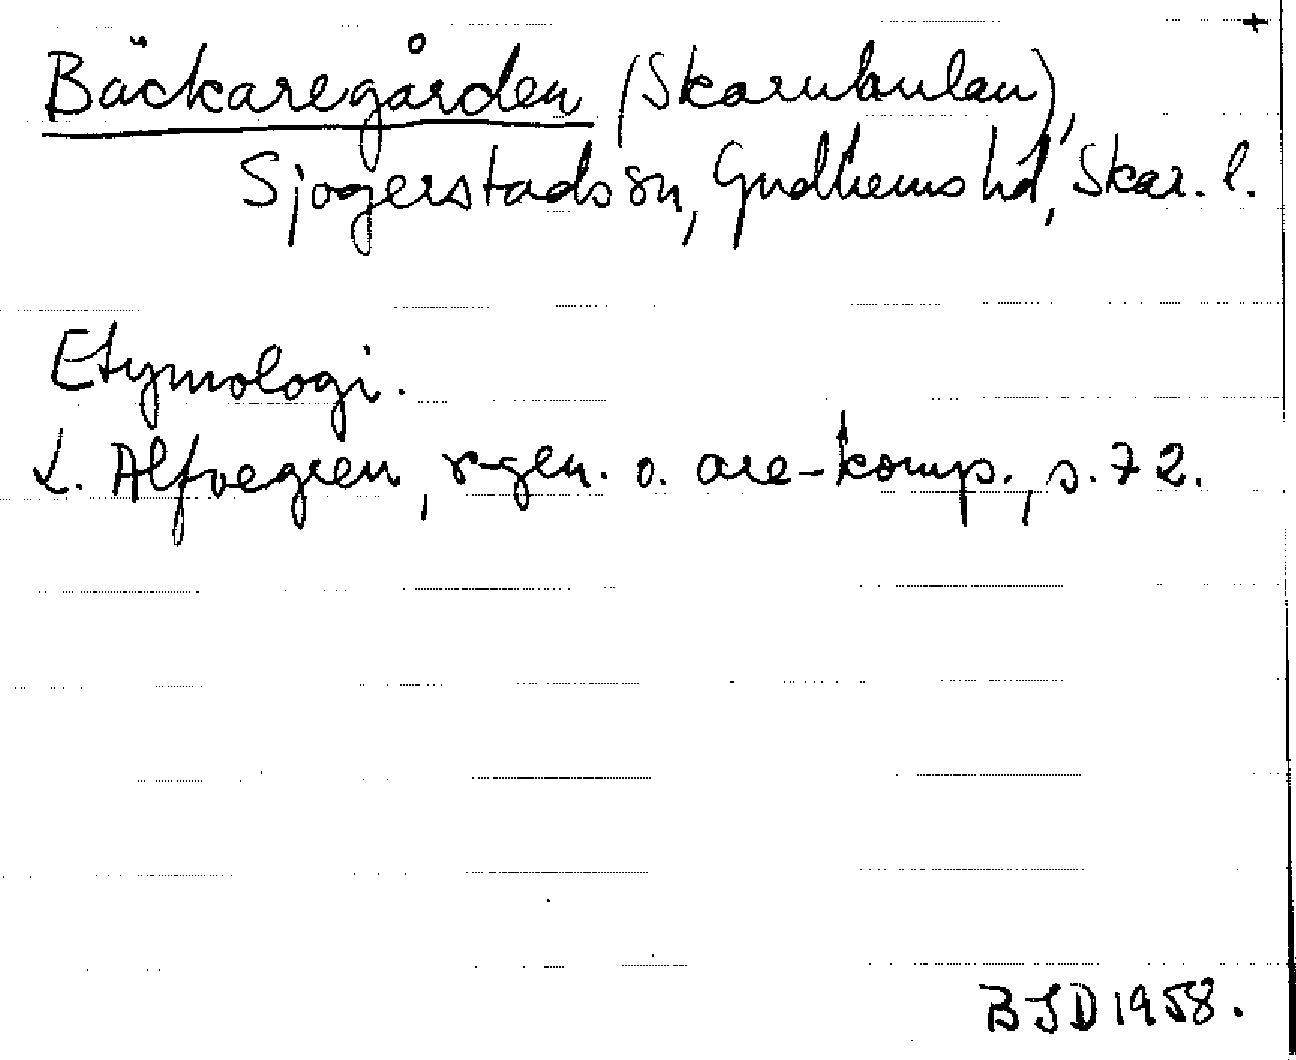 +
Bäckaregården (Skarnbulan),
Sjogerstads sn, Gudhems hd, Skar. l.
Etymologi.
L. Alfvegren, r-gen. o. are-komp., s. 72.
BJD 1958.